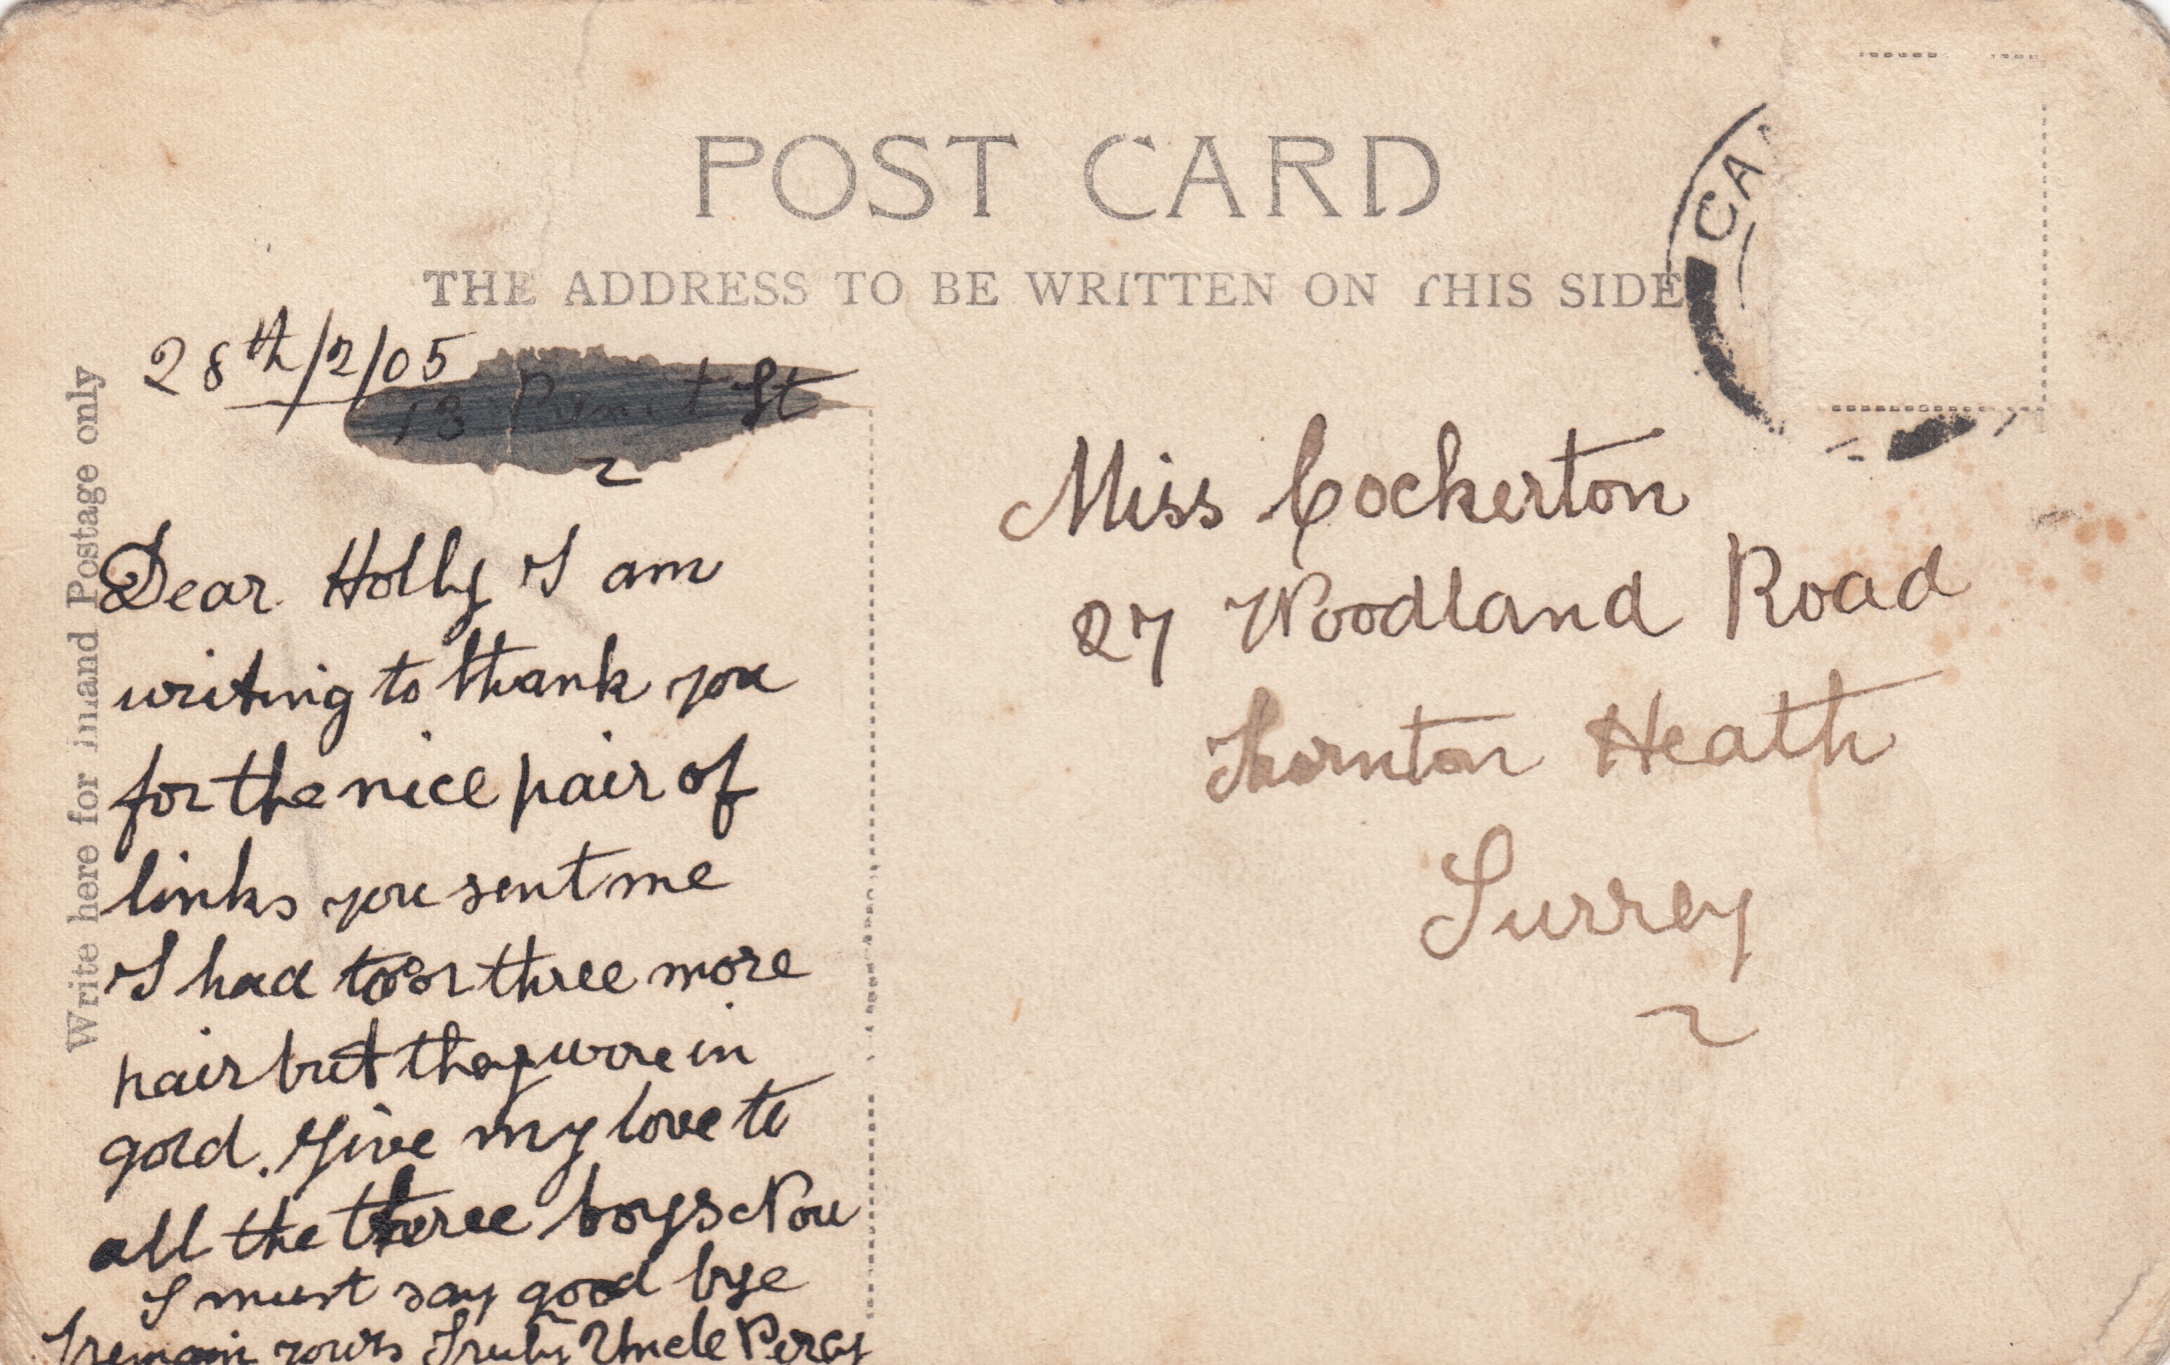 POST CARD
THE ADDRESS TO BE WRITTEN ON THIS SIDE
CA
Write here for Inland Postage only
28th/2/05
13 St
Dear Holly I am
writing to thank you
for the nice pair of
links you sent me
I had too or three more
pair but they wore in
gold. Give my love to
all the three boys Nou
I must say good bye
I remain yours Truly Uncle Percy
Miss Cockerton
27 Woodland Road
Thornton Heath
Surrey